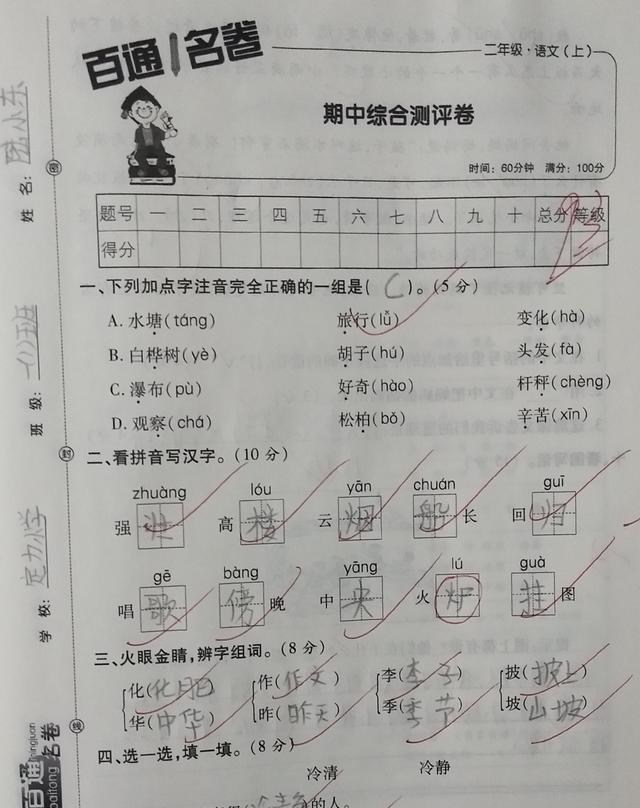 百通1名卷
二年级·语文(上)
期中综合测评卷
时间: 60分钟 满分: 100分
题号 一 二 三 四 五 六 七 八 九 十 总分 等级
得分
一、下列加点字注音完全正确的一组是( C )。(5分)
A. 水塘(táng) 旅行(lǚ) 变化(hà)
B. 白桦树(yè) 胡子(hú) 头发(fà)
C. 瀑布(pù) 好奇(hào) 杆秤(chèng)
D. 观察(chá) 松柏(bǒ) 辛苦(xīn)
二、看拼音写汉字。(10分)
zhuàng lóu yān chuán guī
强壮 高楼 云烟 船长 回归
gē bàng yāng lú guà
唱歌 傍晚 中央 火炉 挂图
三、火眼金睛,辨字组词。(8分)
化(化肥) 作(作文) 李(李子) 披(披上)
华(中华) 昨(昨天) 季(季节) 坡(山坡)
四、选一选,填一填。(8分)
冷清 冷静
的人。
姓名: 陆小东
班级: 一(1)班
学校: 定力小学
密
封
线
百通
名卷